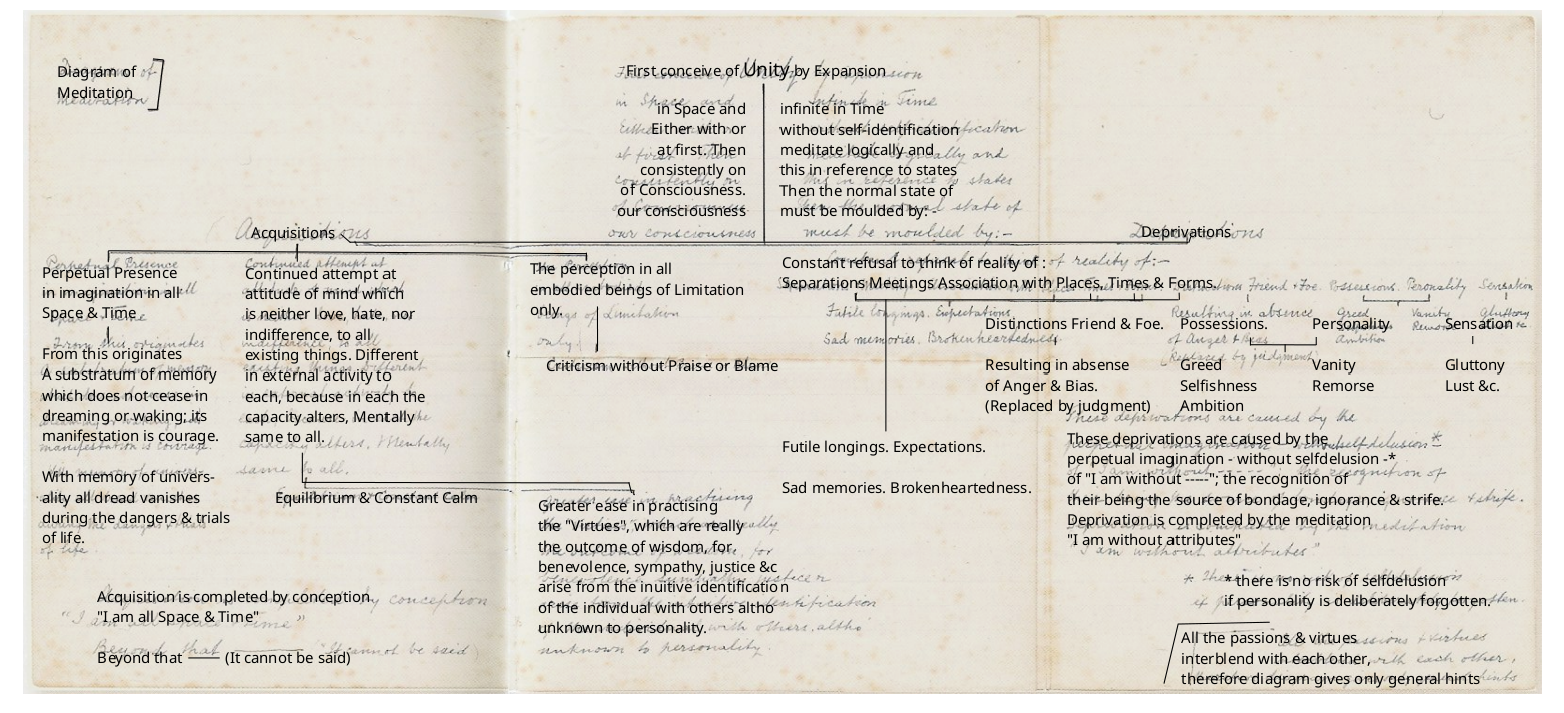 Diagram of
Meditation
First conceive of Unity by Expansion
in Space and infinite in Time
Either with or without self-identification
at first. Then meditate logically and
consistently on this in reference to states
of Consciousness. Then the normal state of
our consciousness must be moulded by: -
Acquisitions
Perpetual Presence
in imagination in all
Space & Time
From this originates
A substratum of memory
which does not cease in
dreaming or waking; its
manifestation is courage.
With memory of univers-
ality all dread vanishes
during the dangers & trials
of life.
Continued attempt at
attitude of mind which
is neither love, hate, nor
indifference, to all
existing things. Different
in external activity to
each, because in each the
capacity alters, Mentally
same to all.
Equilibrium & Constant Calm
The perception in all
embodied beings of Limitation
only.
Criticism without Praise or Blame
Greater ease in practising
the "Virtues", which are really
the outcome of wisdom, for
benevolence, sympathy, justice &c
arise from the inuitive identification
of the individual with others altho
unknown to personality.
Acquisition is completed by conception
"I am all Space & Time"
Beyond that —— (It cannot be said)
Deprivations
Constant refusal to think of reality of :
Separations Meetings Association with Places, Times & Forms.
Futile longings. Expectations.
Sad memories. Brokenheartedness.
Distinctions Friend & Foe.
Resulting in absense
of Anger & Bias.
(Replaced by judgment)
Possessions.
Greed
Selfishness
Ambition
Personality
Vanity
Remorse
Sensation
Gluttony
Lust &c.
These deprivations are caused by the
perpetual imagination - without selfdelusion -*
of "I am without -----"; the recognition of
their being the source of bondage, ignorance & strife.
Deprivation is completed by the meditation
"I am without attributes"
* there is no risk of selfdelusion
if personality is deliberately forgotten.
All the passions & virtues
interblend with each other,
therefore diagram gives only general hints